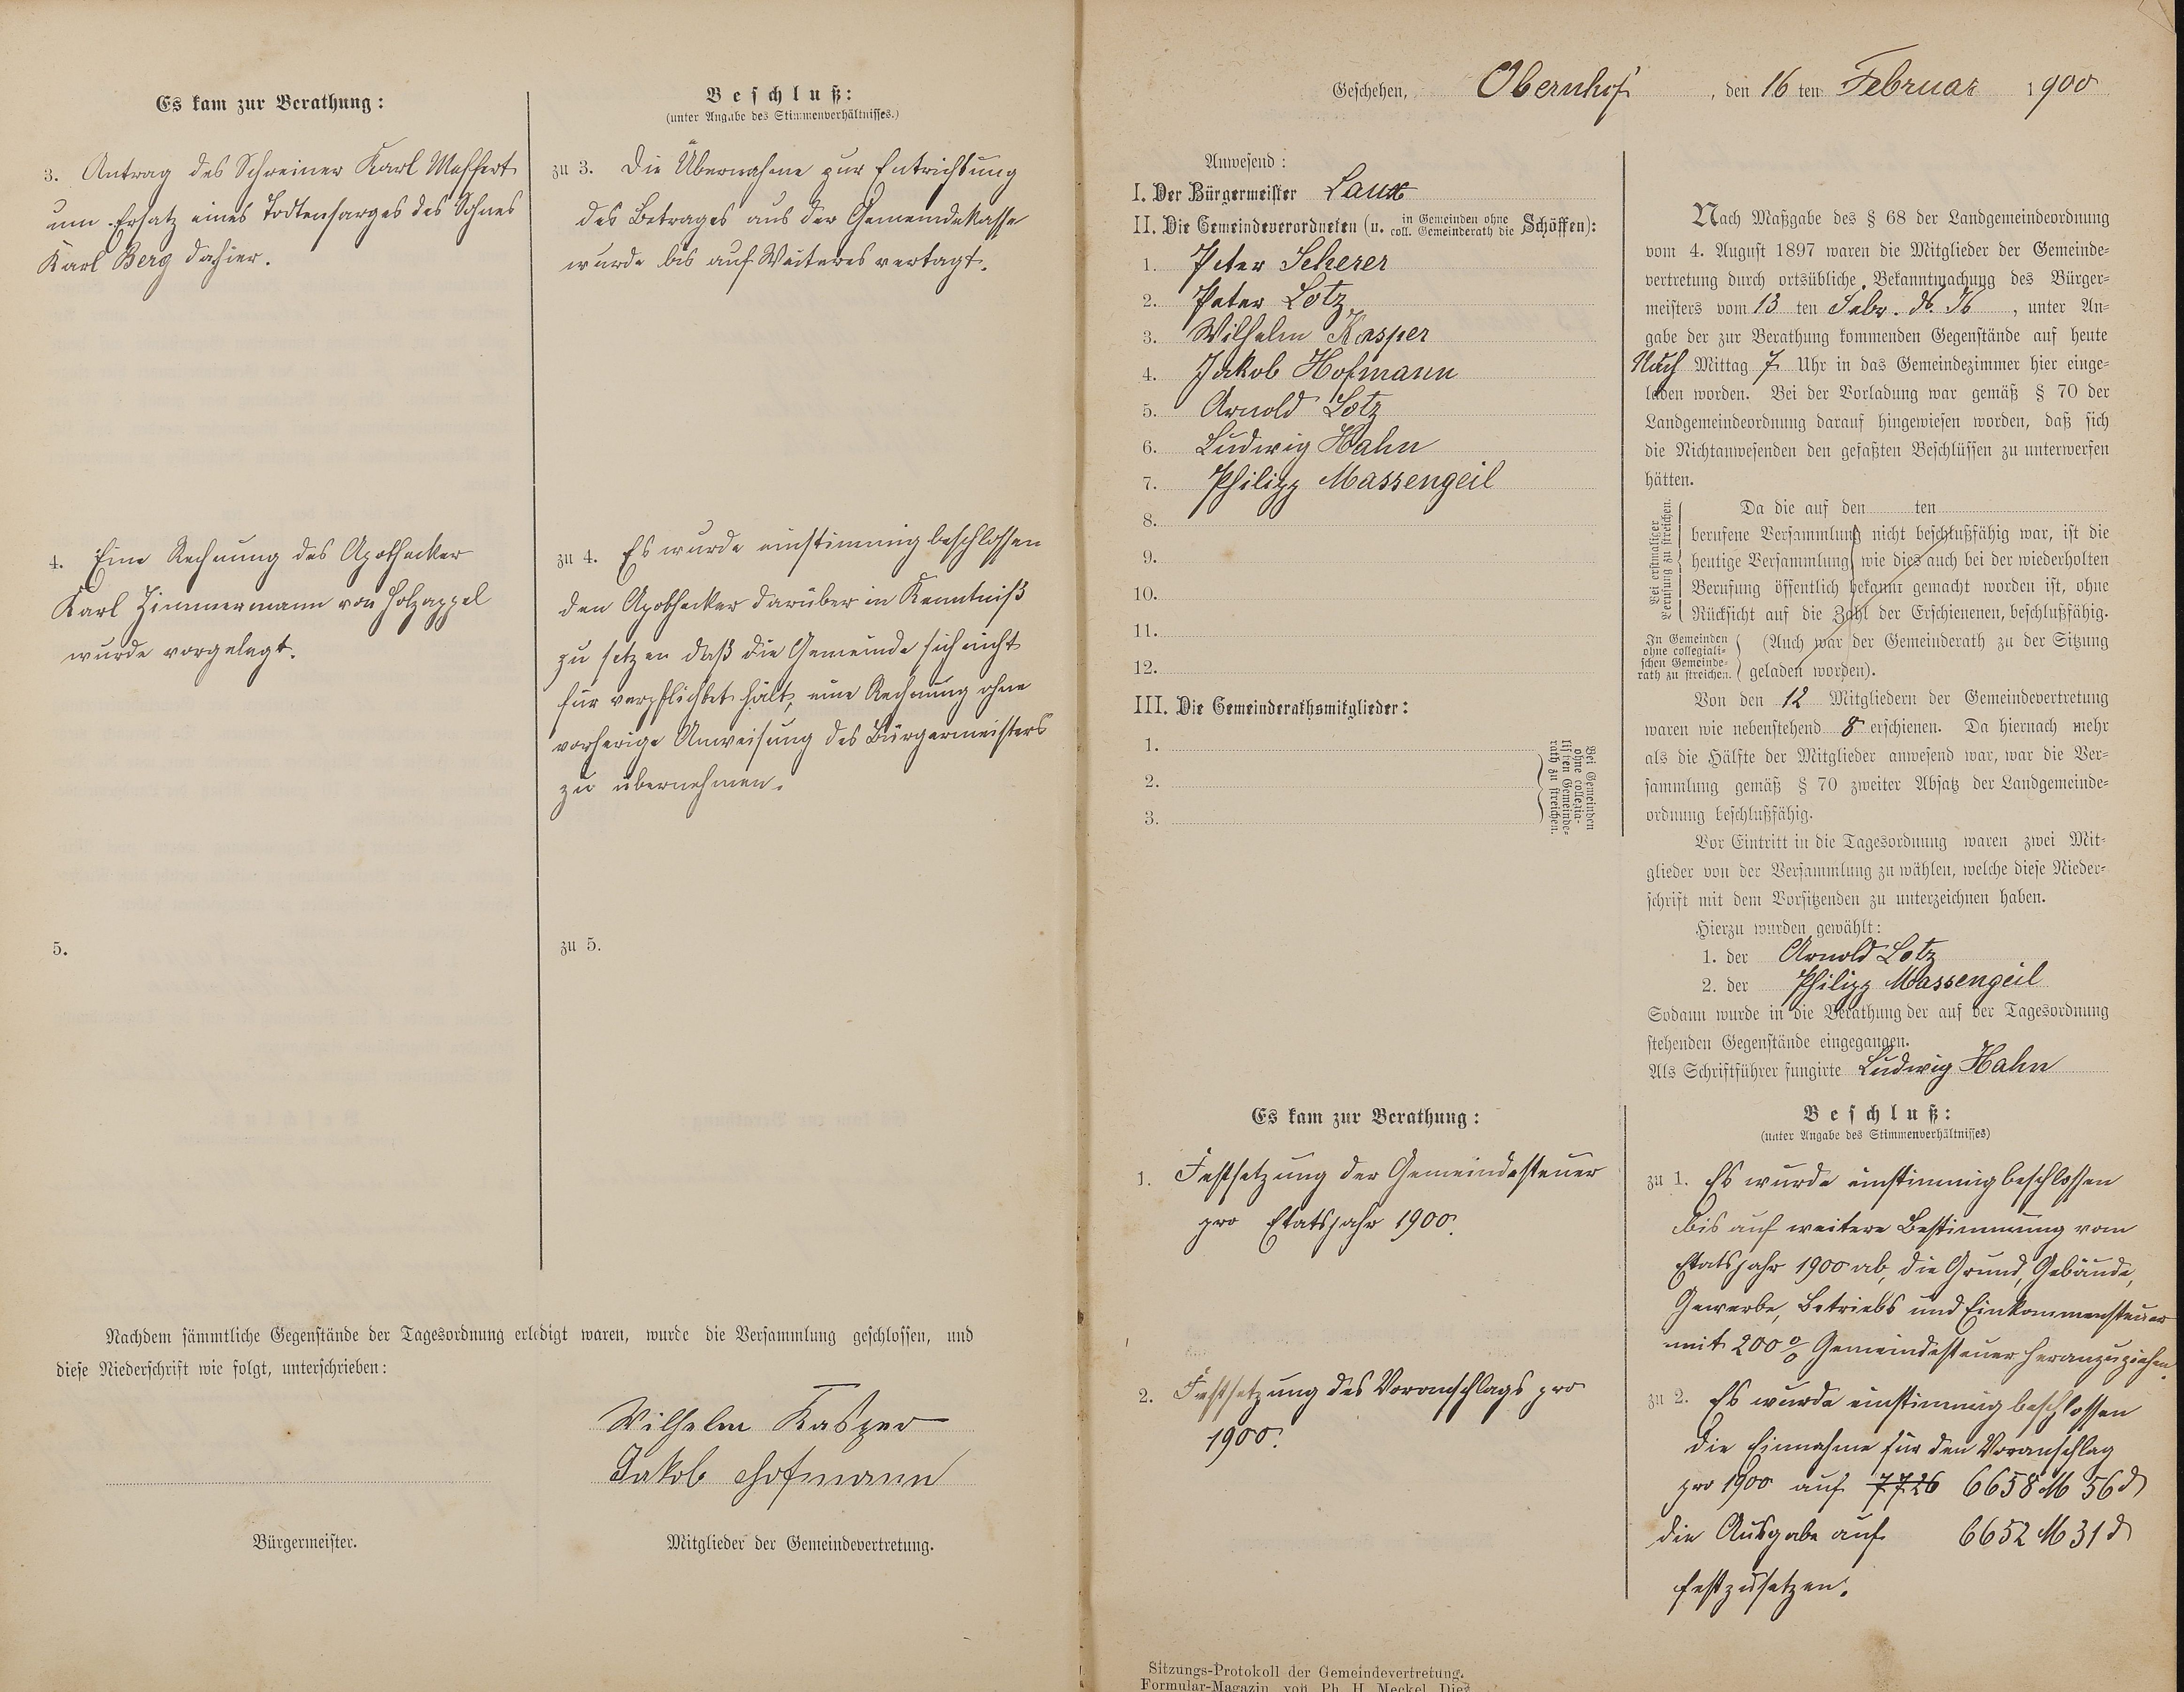 Es kam zur Berathung:
3. Antrag des Schreiner Karl Maffert
um Ersatz eines Todtensarges des Sohnes
Karl Berg dahier.
4. Eine Rechnung des Apothecker
Karl Zimmermann von Holzappel
wurde vorgelegt.
5.
Beschluß:
(unter Angabe des Stimmenverhältnisses.)
zu 3. Die Übernahme zur Entrichtung
des Betrages aus der Gemeindekasse
wurde bis auf Weiteres vertagt.
zu 4. Es wurde einstimmig beschlossen
den Apothecker darüber in Kenntniß
zu setzen daß die Gemeinde sich nicht
für verpflichtet hält, eine Rechnung ohne
vorherige Anweisung des Bürgermeisters
zu übernehmen.
zu 5.
Nachdem sämmtliche Gegenstände der Tagesordnung erledigt waren, wurde die Versammlung geschlossen, und
diese Niederschrift wie folgt, unterschrieben:
Wilhelm Kasper
Jakob Hofmann
Bürgermeister.
Mitglieder der Gemeindevertretung.
Geschehen, Obernhof, den 16 ten Februar 1900
Anwesend:
I. Der Bürgermeister Laux
II. Die Gemeindeverordneten (u. in Gemeinden ohne coll. Gemeinderath die Schöffen):
1. Peter Scherer
2. Peter Lotz
3. Wilhelm Kasper
4. Jakob Hofmann
5. Arnold Lotz
6. Ludwig Hahn
7. Philipp Massengeil
8.
9.
10.
11.
12.
III. Die Gemeinderathsmitglieder:
1.
2.
3.
Bei Gemeinden
ohne collegia-
lischen Gemeinde-
rath zu streichen.
Nach Maßgabe des § 68 der Landgemeindeordnung
vom 4. August 1897 waren die Mitglieder der Gemeinde-
vertretung durch ortsübliche Bekanntmachung des Bürger-
meisters vom 13 ten Febr. ds. Js, unter An-
gabe der zur Berathung kommenden Gegenstände auf heute
Nach Mittag 7 Uhr in das Gemeindezimmer hier einge-
laden worden. Bei der Vorladung war gemäß § 70 der
Landgemeindeordnung darauf hingewiesen worden, daß sich
die Nichtanwesenden den gefaßten Beschlüssen zu unterwerfen
hätten.
Bei erstmaliger
Berufung zu streichen.
Da die auf den ten
berufene Versammlung nicht beschlußfähig war, ist die
heutige Versammlung, wie dies auch bei der wiederholten
Berufung öffentlich bekannt gemacht worden ist, ohne
Rücksicht auf die Zahl der Erschienenen, beschlußfähig.
In Gemeinden
ohne collegiali-
schen Gemeinde-
rath zu streichen.
(Auch war der Gemeinderath zu der Sitzung
geladen worden).
Von den 12 Mitgliedern der Gemeindevertretung
waren wie nebenstehend 8 erschienen. Da hiernach mehr
als die Hälfte der Mitglieder anwesend war, war die Ver-
sammlung gemäß § 70 zweiter Absatz der Landgemeinde-
ordnung beschlußfähig.
Vor Eintritt in die Tagesordnung waren zwei Mit-
glieder von der Versammlung zu wählen, welche diese Nieder-
schrift mit dem Vorsitzenden zu unterzeichnen haben.
Hierzu wurden gewählt:
1. der Arnold Lotz
2. der Philipp Massengeil
Sodann wurde in die Berathung der auf der Tagesordnung
stehenden Gegenstände eingegangen.
Als Schriftführer fungirte Ludwig Hahn
Es kam zur Berathung:
1. Festsetzung der Gemeindesteuer
pro Etatsjahr 1900.
2. Festsetzung des Voranschlags pro
1900.
Beschluß:
(unter Angabe des Stimmenverhältnisses)
zu 1. Es wurde einstimmig beschlossen
bis auf weitere Bestimmung vom
Etatsjahr 1900 ab, die Grund, Gebäude,
Gewerbe, Betriebs und Einkommensteuer
mit 200 % Gemeindesteuer heranzuziehen.
zu 2. Es wurde einstimmig beschlossen
die Einnahme für den Voranschlag
pro 1900 auf 7726 6658 M 56 d
die Ausgabe auf 6652 M 31 d
festzusetzen.
Sitzungs-Protokoll der Gemeindevertretung.
Formular-Magazin von Ph. H. Meckel, Diez